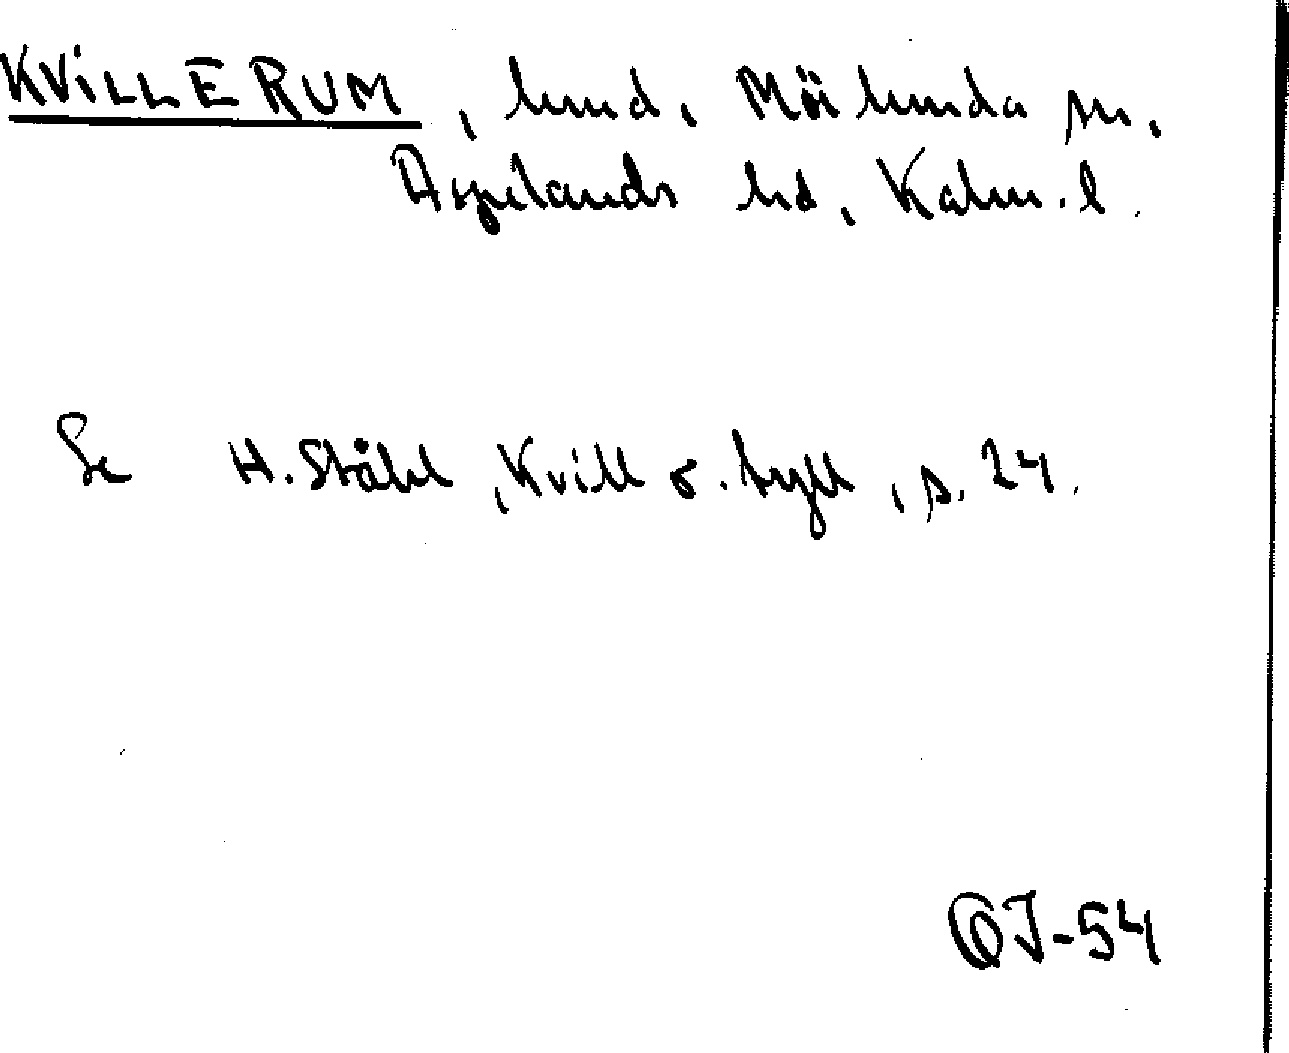 KVILLERUM, hmd, Mörlunda sn.
Aspelands hd, Kalm. l.
Se H. Ståhl, Kvill o. tyll, s. 24.
OJ-54